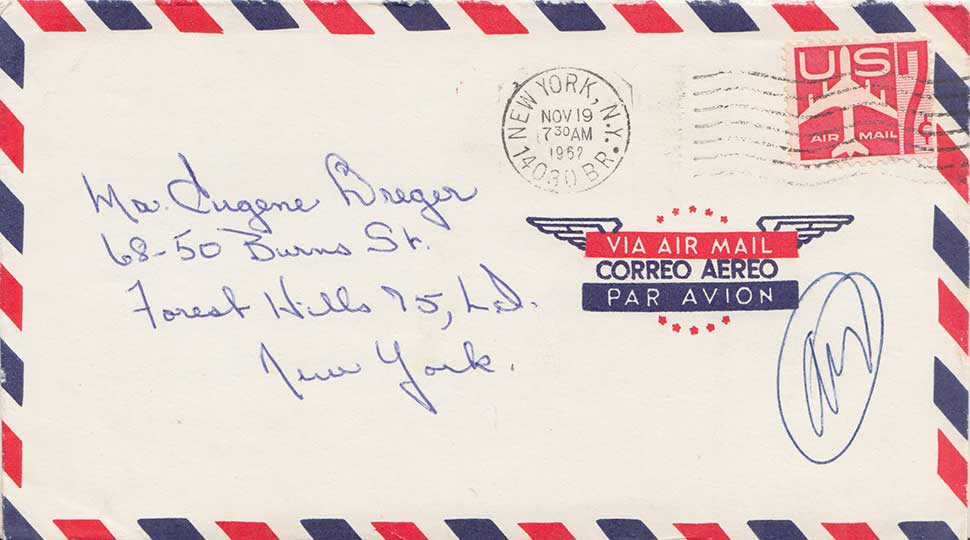 NEW YORK, N.Y.
NOV 19
7 30 AM
1962
14030 BR.
US
7¢
AIR MAIL
Mr. Eugene Breger
68-50 Burns St.
Forest Hills 75, L.I.
New York.
VIA AIR MAIL
CORREO AEREO
PAR AVION